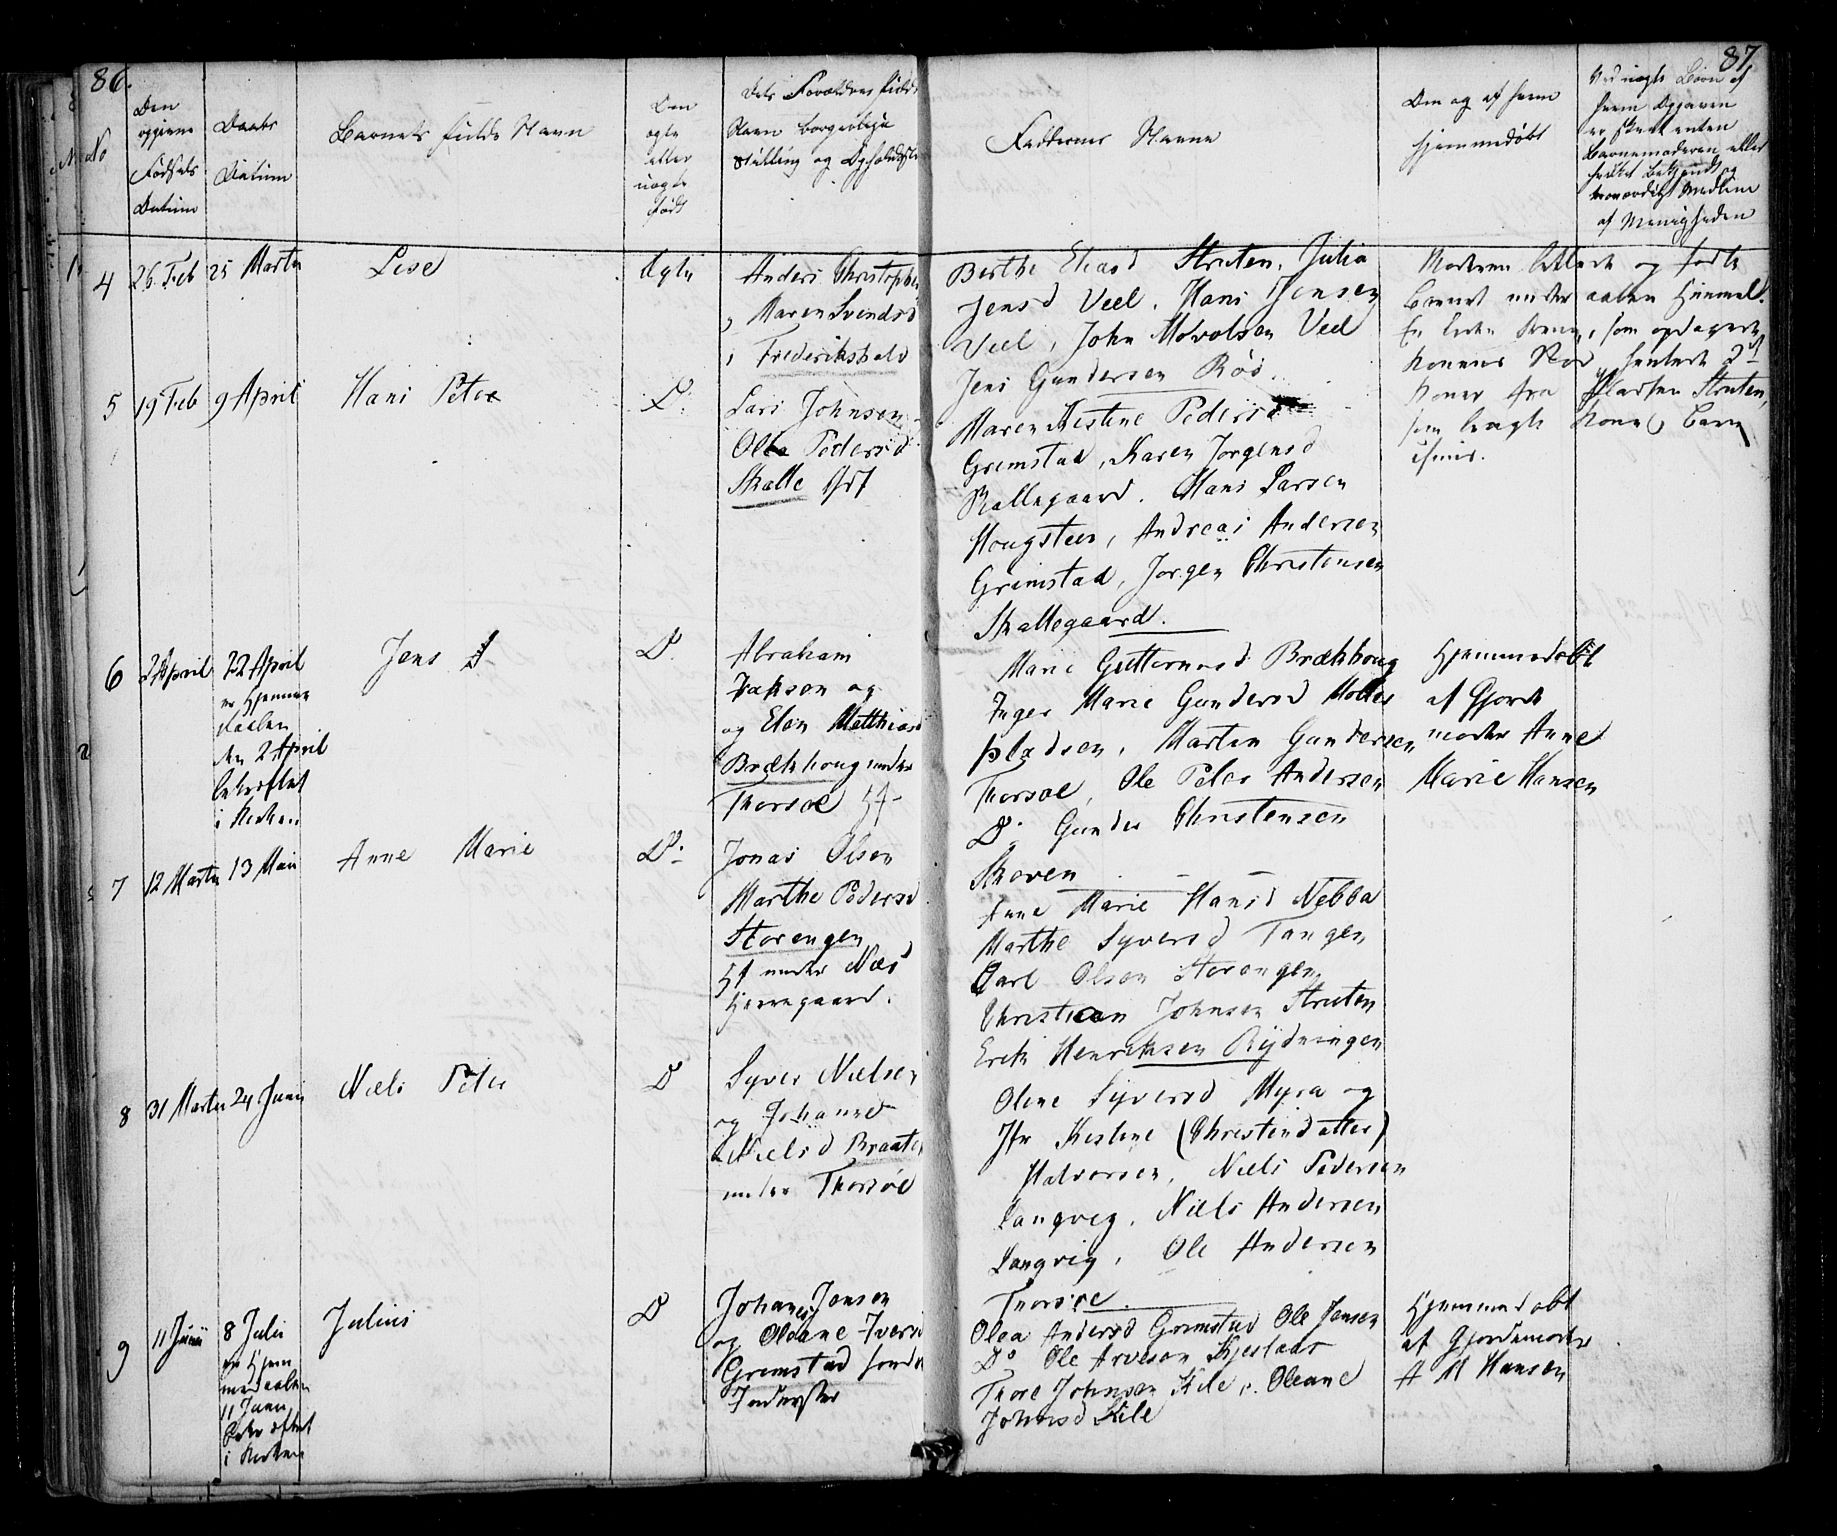 86.
87
No
Den
opgivne
Fødsels
Datum
Daabs
Datum
Barnets fulde Navn
Om
ægte
eller
uægte
født
Dets Forældres fulde
Navn borgerlige
Stilling og Opholdssted
Faddernes Navne
Om og af hvem
hjemmedøbt
Ved uægte Børn af
hvem Opgaven
er skeet enten
Barnemoderen eller
troværdigt Medlem
af Menigheden
4
26 Feb
25 Marts
Lise
Ægte
Anders Christophe
Maren Svendsd
i Frederikshald
Berthe Eliasd Struten, Julia
Jensd Veel, Hans Jensen
Veel, John Veel
Jens Gundersen Röd.
Moderen og fødte
Barnet under aaben Himmel.
En liden Dreng, som opdagede
Konens Nød hentede 2de
Koner fra Pladsen Struten,
som bragte Kone og Barn
5
19 Feb
9 April
Hans Peter
D:
Lars Johnsen
Olea Pedersd
Skalle
Maren Kestine Pedersd
Gremstad, Karen Jorgensd
Kallegaard. Hans Larsen
Hougsteen, Andreas Andersen
Gremstad, Jorgen Christensen
Skallegaard.
6
2 April
22 April
er Hjemme
daaben
den 2 April
bekræftet
i Kirken
Jens
D.
Abraham
Isaksen og
og Elen Matthiasd
Brækhoug under
Thorsøe
Marie Guttormsd Brækhoug
Inger Marie Gundersd Möller
pladsen, Marten Gundersen
Thorsøe, Ole Peter Andersen
Do. Gunder Christensen
Skoven
Hjemmedøbt
af Gjorde
moder Anne
Marie Hansen
7
12 Marts
13 Maii
Anne Marie
D.
Jonas Olsen
Marthe Pedersd
Storengen
under Næs
Herregaard.
Anne Marie Hansd Nebba
Marthe Syversd Tangen
Carl Olsen Storengen
Christian Johnsen Struten
Erik Henriksen Rydningen
8
31 Marts
24 Junii
Niels Peter
D
Syver Nielsen
og Johanne
Nielsd Braaten
under Thorsøe
Olene Syversd Myra og
Jfr Kestine (Christendatter)
Halvorsen, Niels Pedersen
Langvig, Niels Andersen
Langvig, Ole Andersen
Thorsøe.
9
11 Junii
8 Julii
er Hjem
medaaben
11 Junii
Bekræftet
i Kirken
Julius
D
Johannes Jensen
og Oleane Iversd
Gremstad
Olea Andersd Gremstad Ole Jensen
Do Ole Arvesen Kjeslaas
Thore Johnsen Kile, Oleane
Johnsd Kile
Hjemmedøbt
af Gjordemoder
A M Hansen